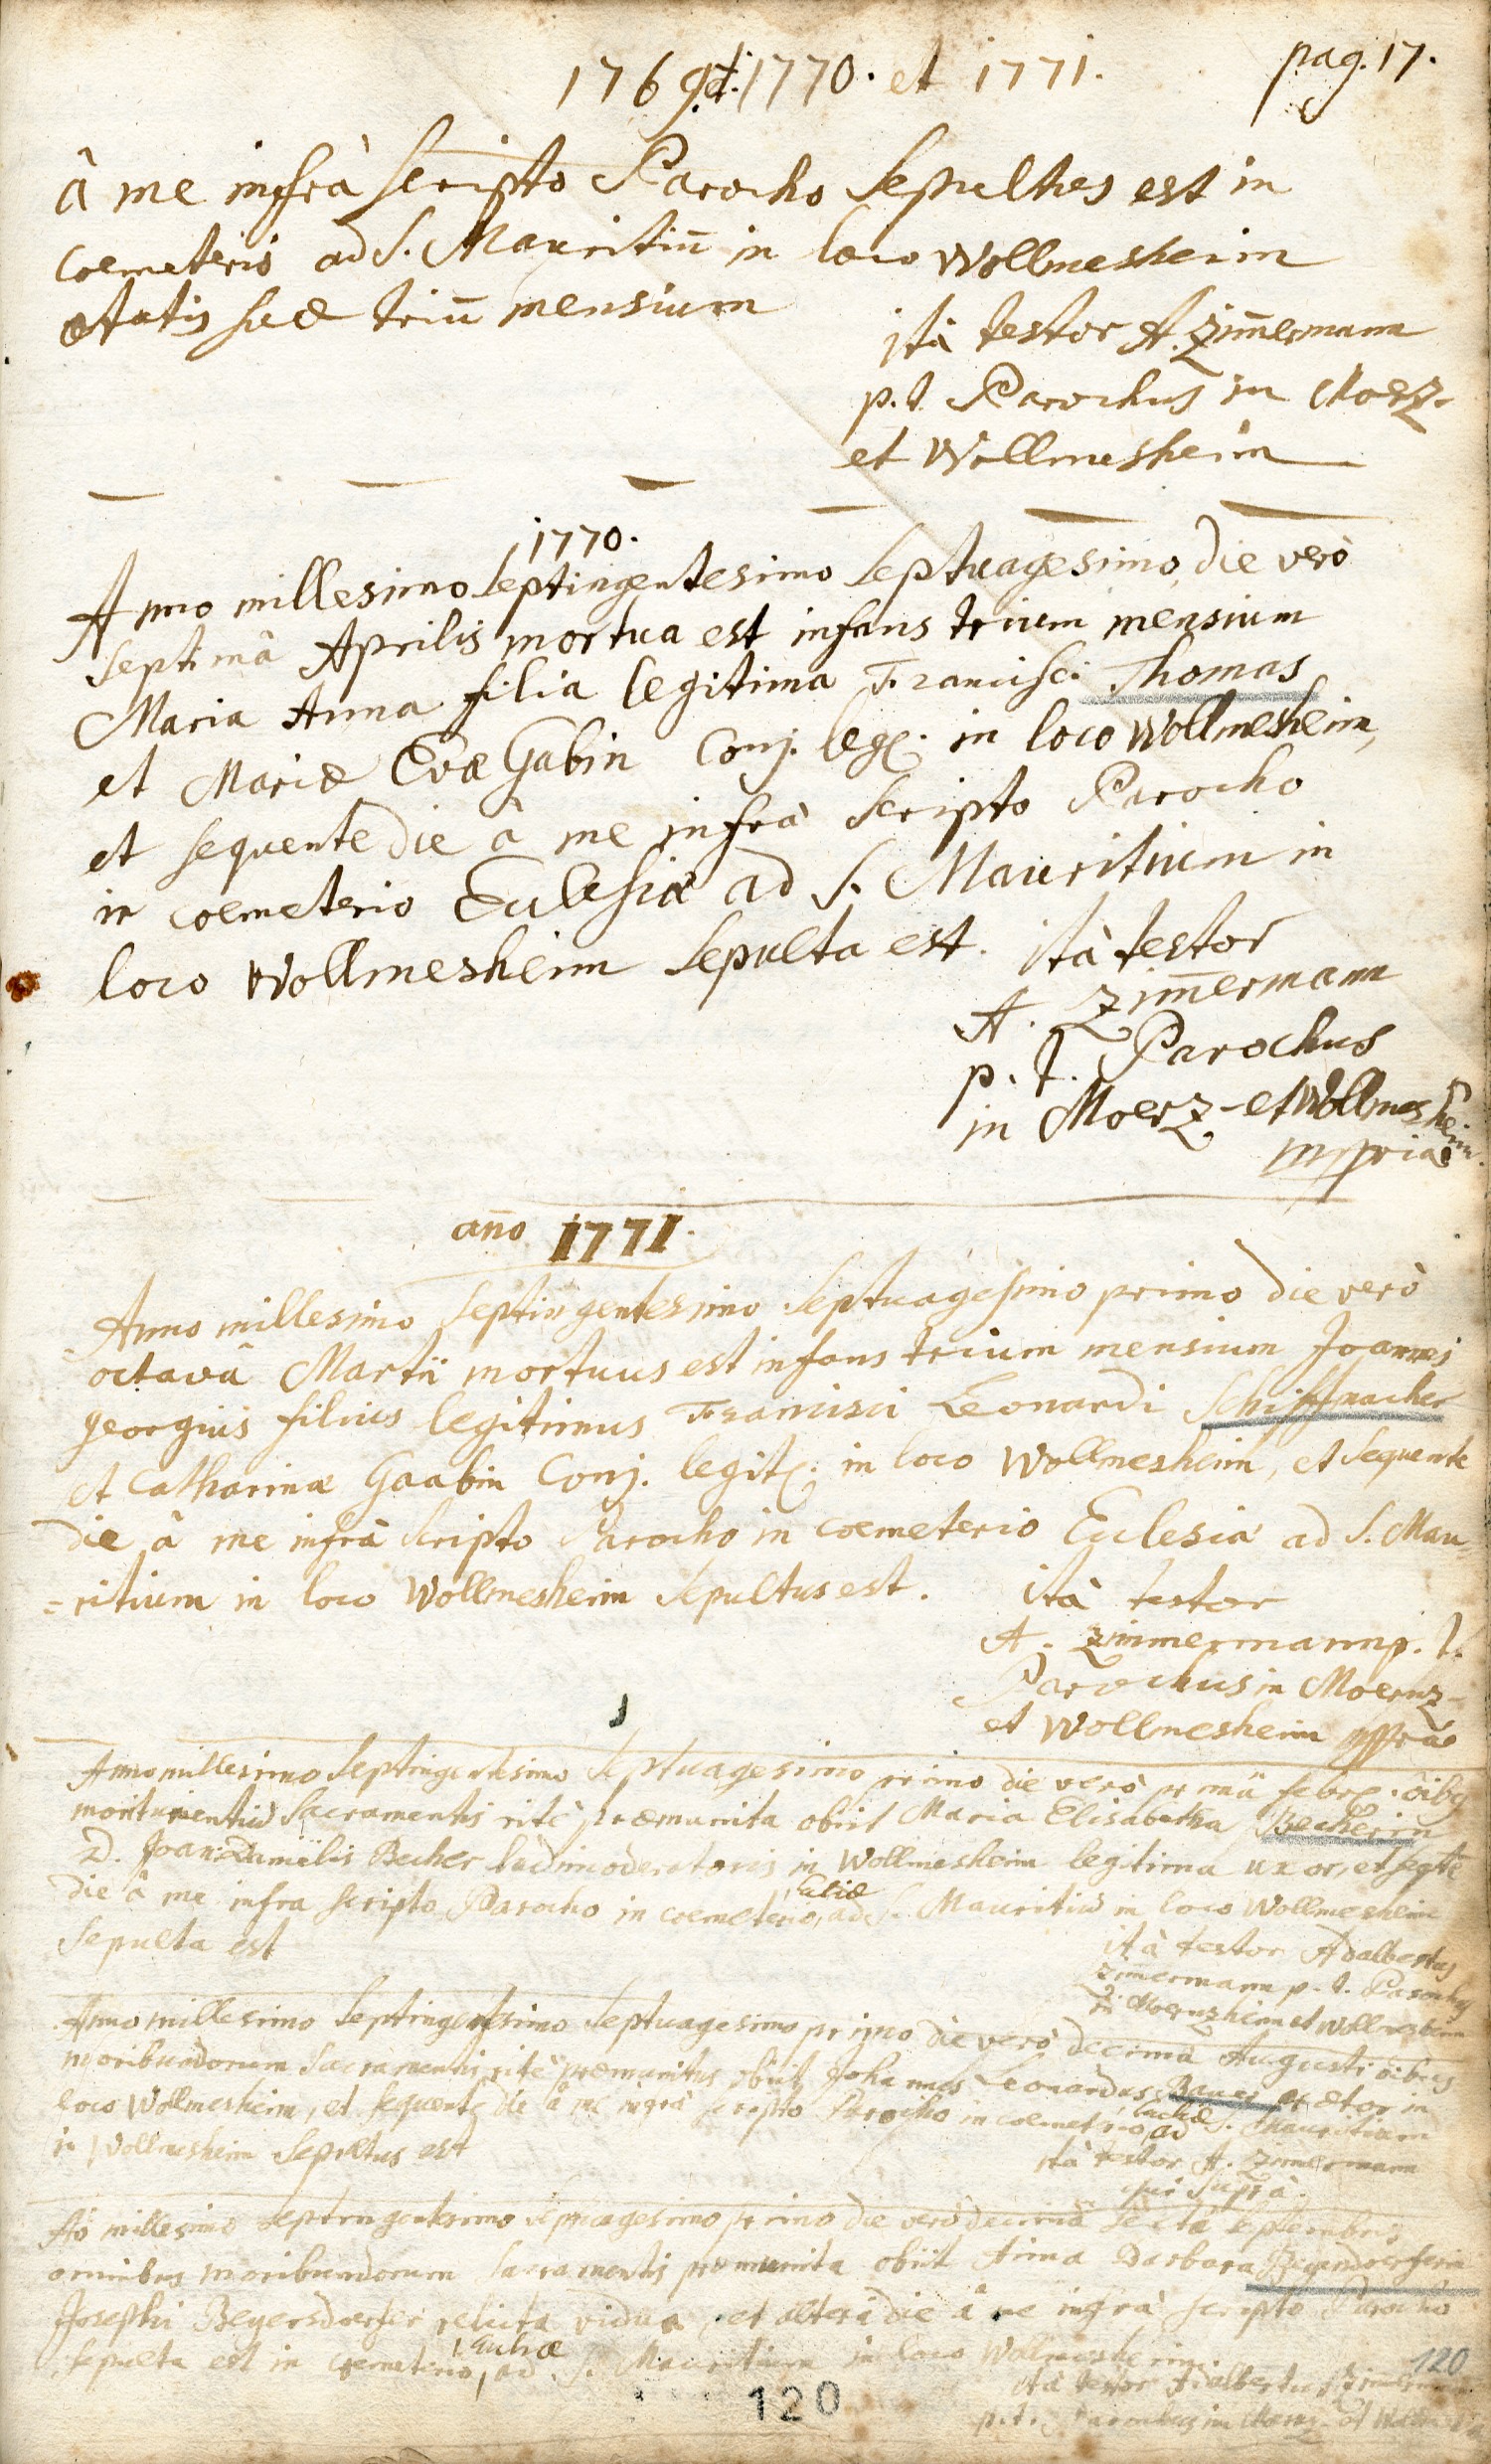 1769. et. 1770. et 1771.
pag. 17.
â me infrà scripto Parocho sepultus est in
coemeterio ad S. Mauritiū in loco Wollmesheim
ætatis suæ triū mensium
ità testor A. Zim̄ermann
p. t. Parochus in Moerz-
et Wollmesheim
1770.
Anno millesimo septingentesimo septuagesimo, die verò
septimâ Aprilis mortua est infans trium mensium
Maria Anna filia legitima Francisci Thomas
et Mariæ Evæ Gabin Conj. leg. in loco Wollmesheim,
et sequente die â me infrà scripto Parocho
in coemeterio Ecclesiæ ad S. Mauritium in
loco Wollmesheim sepulta est. ità testor
A. Zim̄ermann
p. t. Parochus
in Moerz- et Wollmesheim.
mppria
an̄o 1771.
Anno millesimo septingentesimo septuagesimo primo die verò
octavâ Martii mortuus est infans trium mensium Joannes
georgius filius legitimus Francisci Leonardi Schiffmacher
et Catharinæ Gaabin Conj. legit. in loco Wollmesheim, et sequente
die â me infrà scripto Parocho in coemeterio Ecclesiæ ad S. Mau=
=ritium in loco Wollmesheim sepultus est. ità testor
A. Zimmermann p. t.
Parochus in Moernz-
et Wollmesheim mppria
Anno millesimo septingentesimo septuagesimo primo die verò primâ febr. oībus
Sacramentis ritè præmunita obiit Maria Elisabetha Becherin
D. Joan: Danielis Becher ludimoderatoris in Wollmesheim legitima uxor, et seqte
die â me infra scripto Parocho in coemeterio, Eccliæ ad S. Mauritiū in loco Wollmesheim
sepulta est
ità testor Adalbertus
Zim̄ermann p. t. Parochus
in Moernzheim et Wollmesheim
Anno millesimo septingentesimo septuagesimo primo die verò decimâ Augusti oībus
moribundorum Sacramentis ritè præmunitus obiit Johannes Leonardus Bauer prætor in
loco Wollmesheim, et sequente die â me infrà scripto Parocho in coemeterio, Eccliæ ad S. Mauritium
in Wollmesheim sepultus est
ità testor A. Zimmermann
qui suprà.
Aō millesimo septingentesimo septuagesimo primo die verò decimâ sextâ septembris
omnibus moribundorum Sacramentis præmunita obiit Anna Barbara
Josephi Beyersdoerfer relicta vidua, et alterâ die â me infrà scripto Parocho
sepulta est in coemeterio, Eccliæ ad S. Mauritium in loco Wolmesheim.
ità testor Adalbertus Zim̄ermann
p. t. Parochus in Moerz- et
120
120